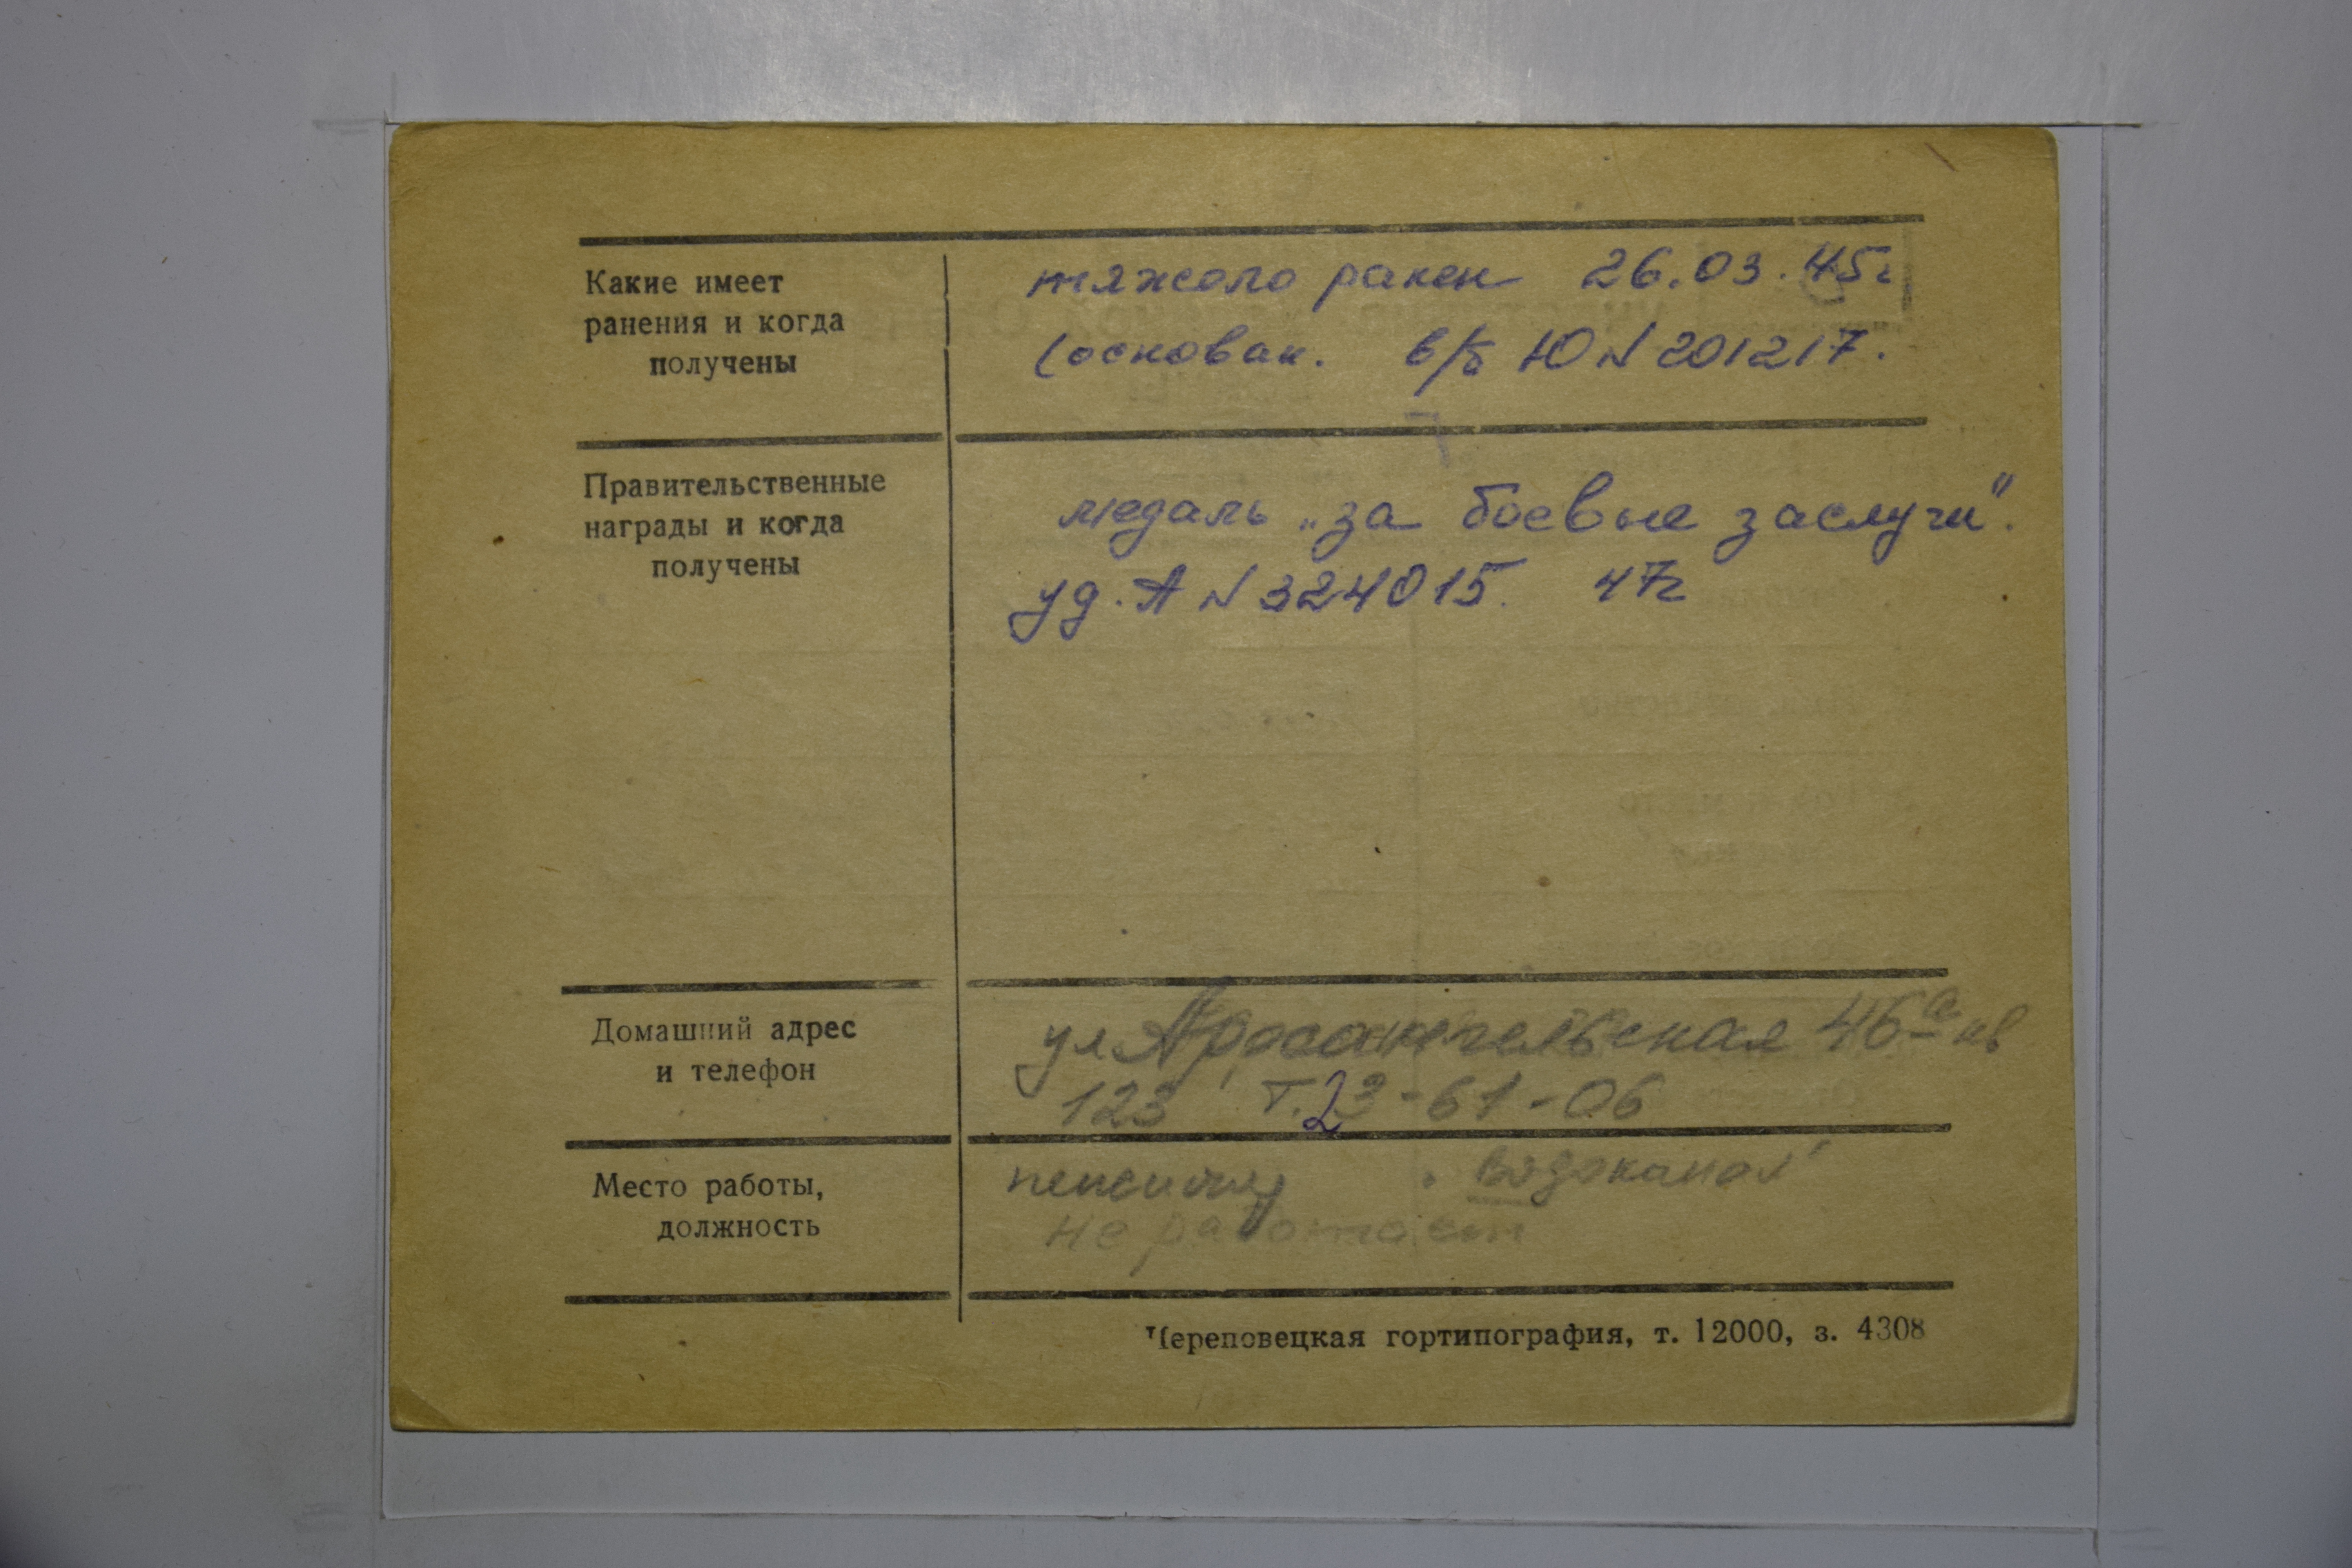 Какие имеет тяжело ранен 26.03.45г
ранения и когда
получены (основан. в/б Ю N 201217.
Правительственные медаль „за боевые заслуги".
награды и когда
получены уд. А N 324015. 47г
Домашний адрес ул Архангельская 46а кв
и телефон 123 т. 23-61-06
Место работы, Водоканал
должность не работает
Череповецкая гортипография, т. 12000, з. 4308